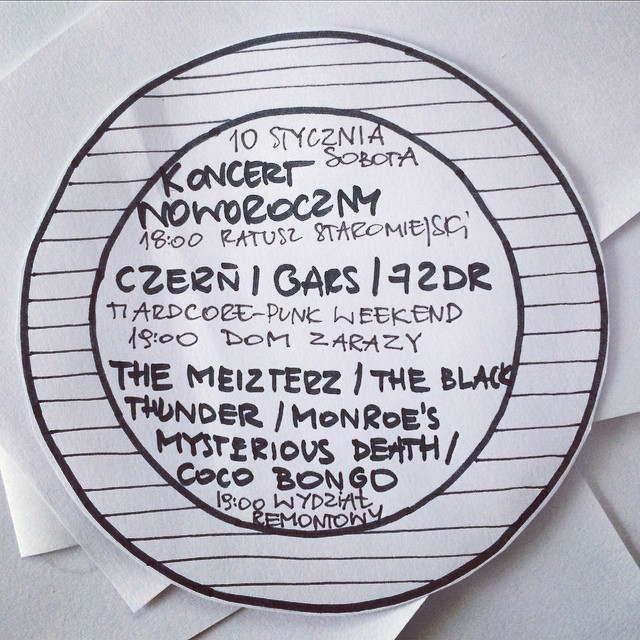 10 STYCZNIA
SOBOTA
KONCERT
NOWOROCZNY
18:00 RATUSZ STAROMIEJSKI
CZERŃ / GARS / 72DR
HARDCORE-PUNK WEEKEND
19:00 DOM ZARAZY
THE MEIZTERZ / THE BLACK
THUNDER / MONROE'S
MYSTERIOUS DEATH /
COCO BONGO
19:00 WYDZIAŁ
REMONTOWY